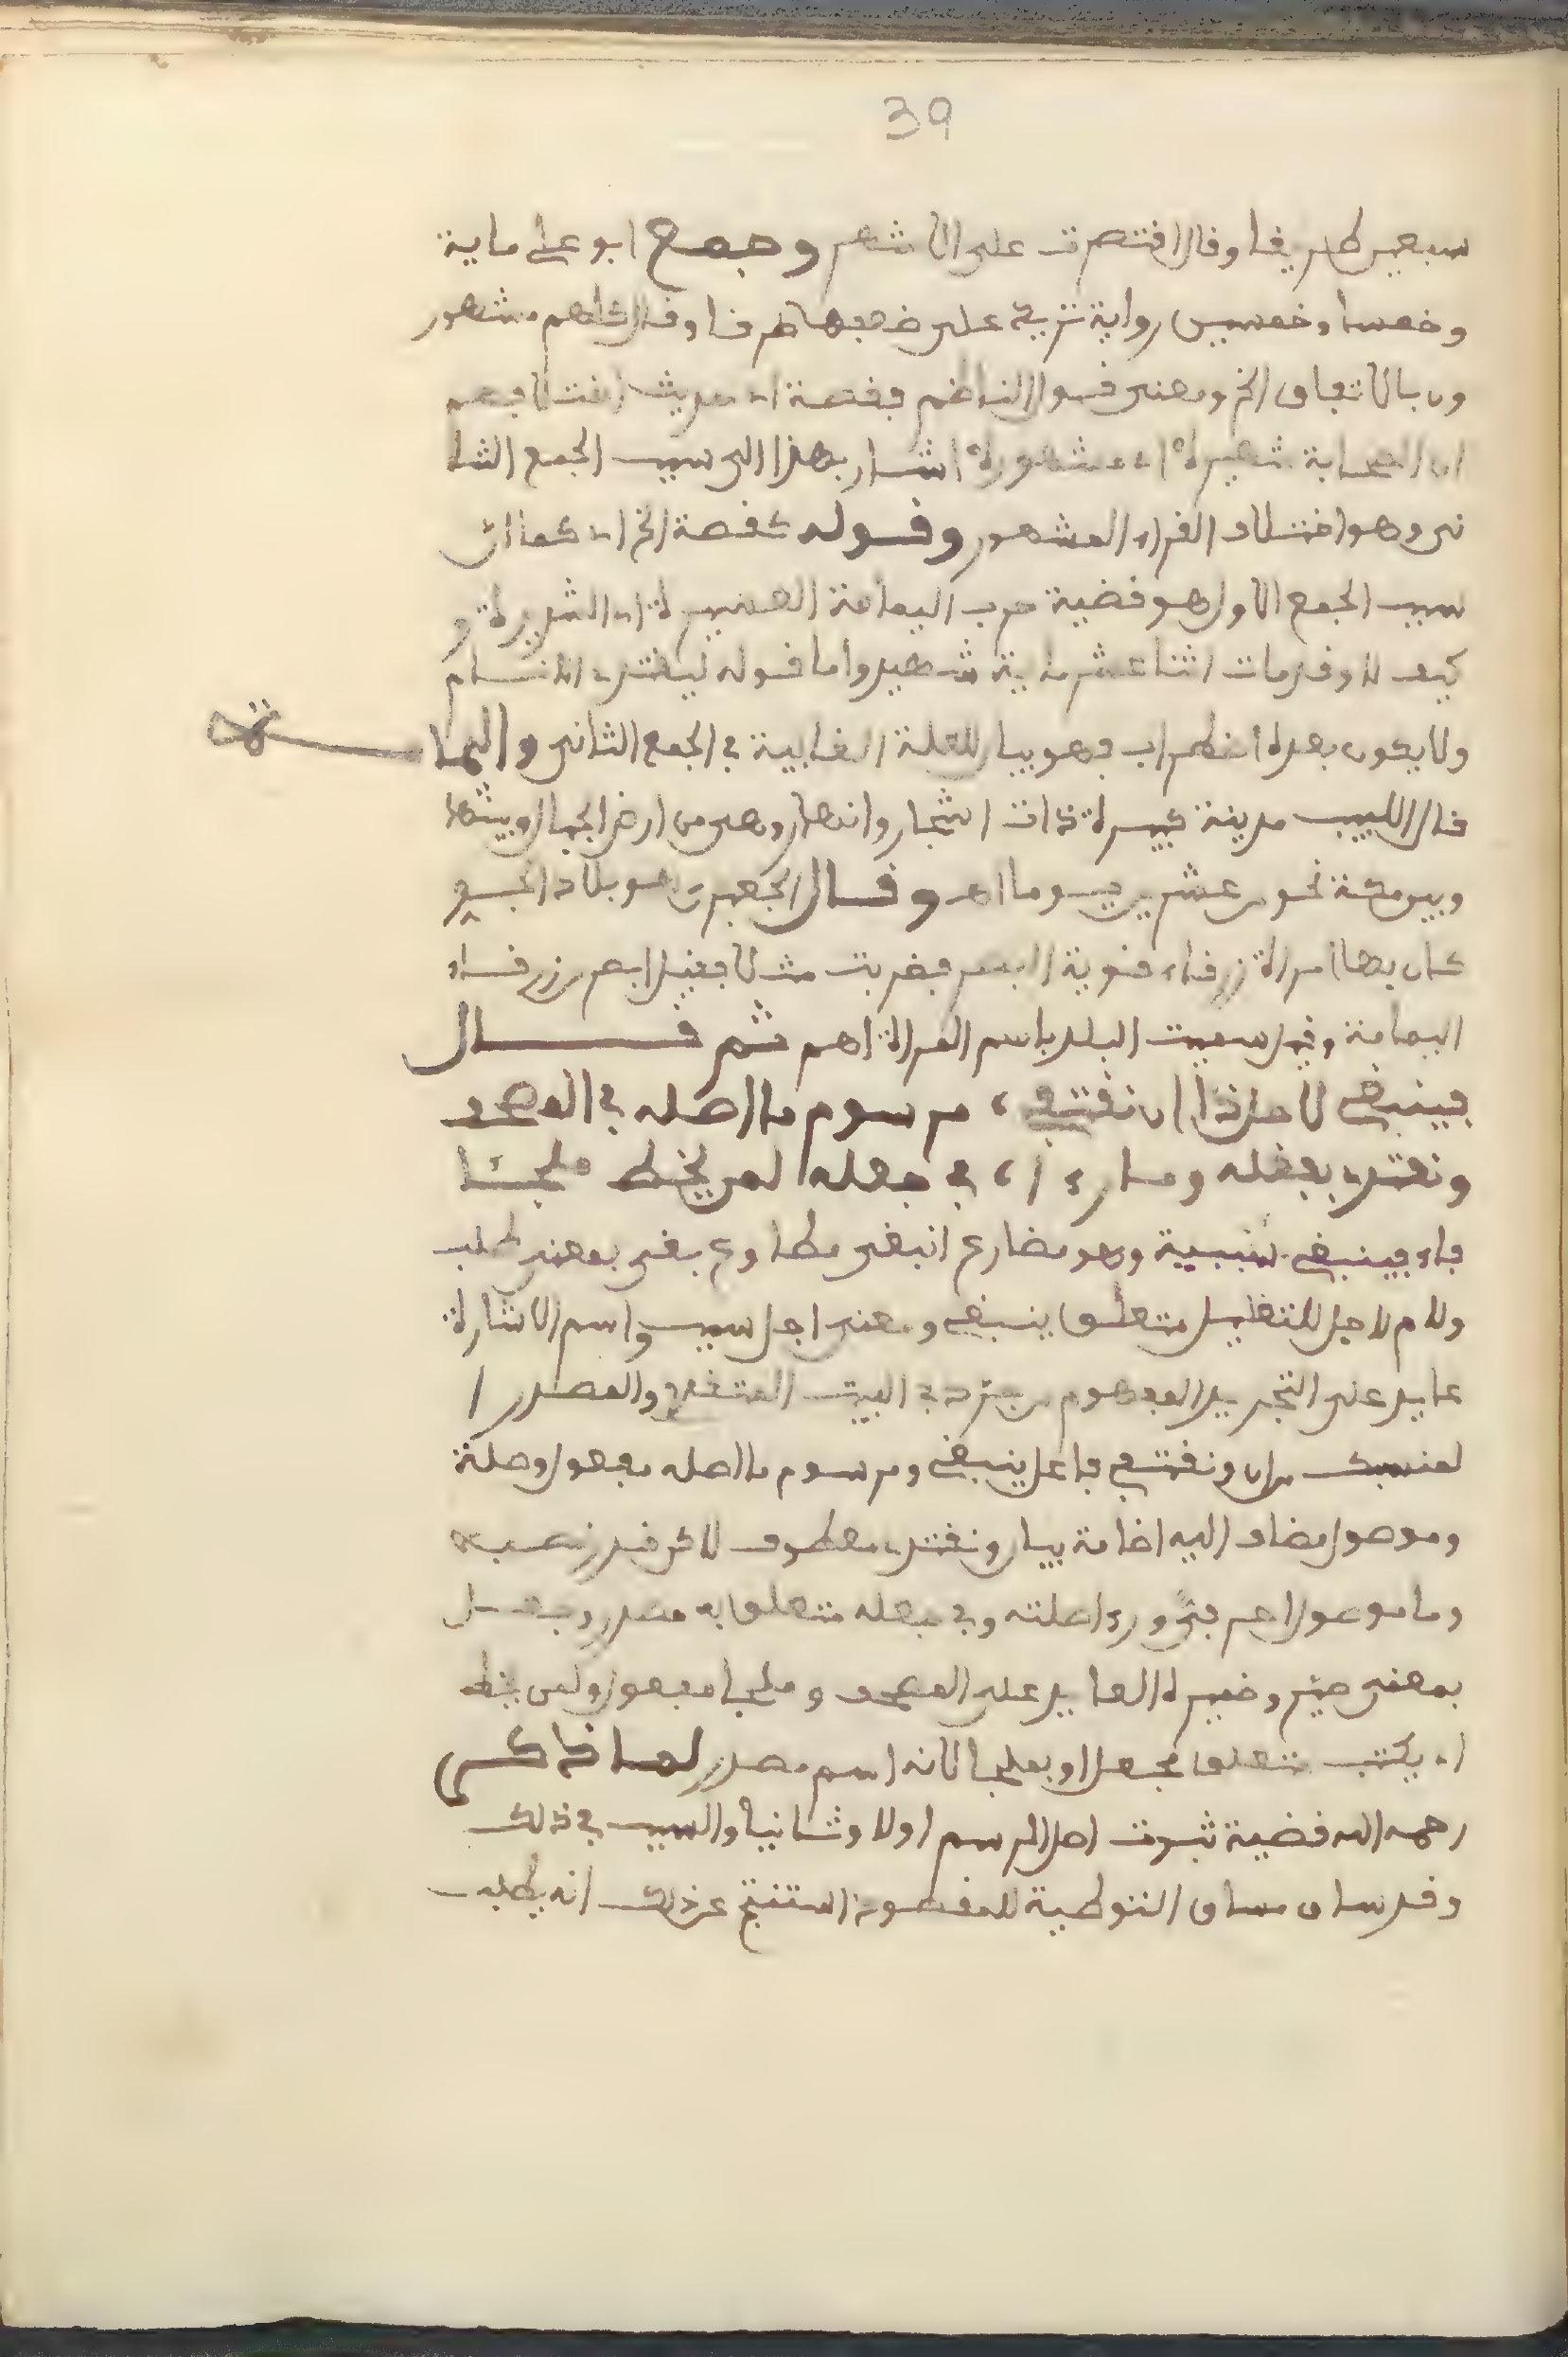 39
سبعين طريقا وقال اقتصرت على الاشهر وجمع ابو علي ماية
وخمسا وخمسين رواية تزيد على ضعفها طرقا وقال كلهم مشهور
ون بالاتفاق الخ ومعنى قول الناظم فقصة اي حديث اختلافهم
اي الصحابة شهيرة اي مشهورة اشار بهذا الى سبب الجمع الثا
ني وهو اختلاف القراء المشهور وقوله كقصة الخ اي كما ان
سبب الجمع الاول هو قضية حرب اليمامة العسيرة اي الشديدة و
كيف لا وقد مات اثنا عشر ماية شهيد واما قوله ليقتدي الانام
ولا يكون بعده اضطراب فهو بيان للعلة الغايية في الجمع الثاني واليما
مة
قال اللبيب مدينة كبيرة ذات اشجار وانهار وهي من ارض الجبال وبينها
وبين مكة نحو من عشرين يوما اهـ وقال الجعبري هو بلاد الجو
كان بها امراة زرقاء قوية البصر فضربت مثلا فقيل ابصر من زرقاء
اليمامة وقيل سميت البلد باسم المراة اهـ ثم قال
فينبغي لاجل ذا ان نقتفي، مرسوم ما اصله في المصحف
ونقتدي بفعله وما رءا، في جعله لمن يخط ملجئا
فاء فينبغي سببية وهو مضارع انبغى مطاوع بغى بمعنى طلب
ولام لاجل للتعليل متعلق ينبغي ومعنى اجل سبب واسم الاشارة
عايد على التجريد المفهوم من جرده في البيت المتقدم والمصدر ا
لمنسبك من ان ونقتفي فاعل ينبغي ومرسوم ما اصله مفعول وصلة
وموصول مضاف اليه اضافة بيان ونقتدي معطوف لاكن قدر نصبه
وما موصول اسم فجر ورءا صلته وفي جعله متعلق به مصدر جعل
بمعنى صير وضميره العايد على المصحف وملجا مفعول ولمن يخط
اي يكتب متعلق بجعل او بملجا لانه اسم مصدر لما ذكر
رحمه الله قضية ثبوت اصل الرسم اولا وثانيا والسبب في ذلك
وقد ساق مساق التوطية للمقصود استنتج عن ذلك انه يطلب